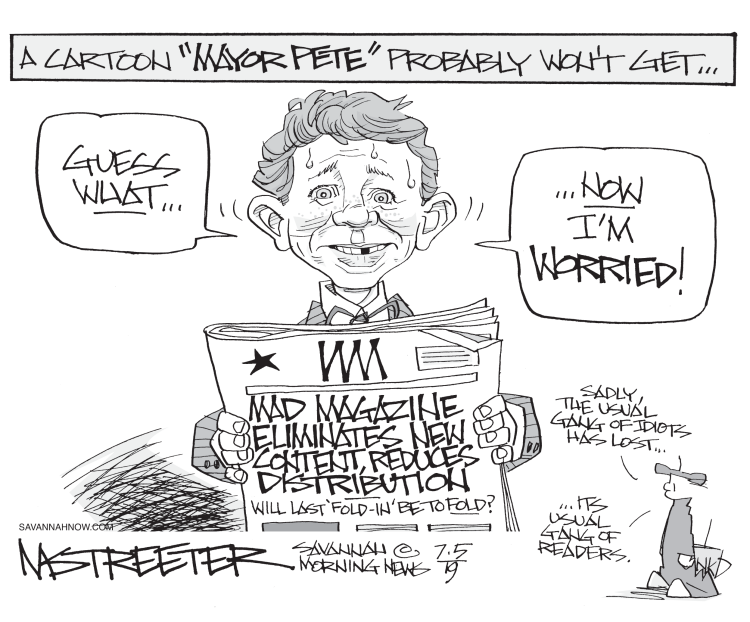 A CARTOON "MAYOR PETE" PROBABLY WON'T GET...
GUESS
WHAT...
...NOW
I'M
WORRIED!
MAD MAGAZINE
ELIMINATES NEW
CONTENT, REDUCES
DISTRIBUTION
WILL LAST 'FOLD-IN' BE TO FOLD?
SADLY,
THE USUAL
GANG OF IDIOTS
HAS LOST...
...ITS
USUAL
GANG OF
READERS.
INK
SAVANNAHNOW.COM
STREETER
SAVANNAH ©
MORNING NEWS
7.5
19